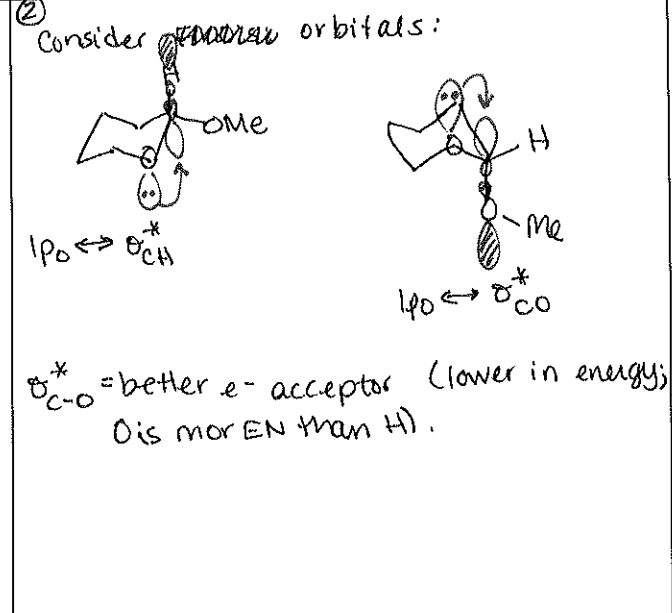 ②
Consider orbitals:
OMe
H
lpo ↔ σ*CH
Me
lpo ↔ σ*CO
σ*C-O = better e- acceptor (lower in energy;
O is mor EN than H).